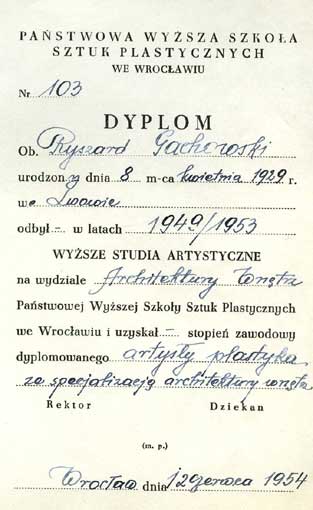 PAŃSTWOWA WYŻSZA SZKOŁA
SZTUK PLASTYCZNYCH
WE WROCŁAWIU
Nr 103
DYPLOM
Ob. Ryszard Gachowski
urodzony dnia 8 m-ca kwietnia 1929 r.
we Lwowie
odbył – w latach 1949/1953
WYŻSZE STUDIA ARTYSTYCZNE
na wydziale Architektury Wnętrz
Państwowej Wyższej Szkoły Sztuk Plastycznych
we Wrocławiu i uzyskał – stopień zawodowy
dyplomowanego artysty plastyka
ze specjalizacją architektury wnętrz
Rektor Dziekan
(m. p.)
Wrocław dnia 12 czerwca 1954